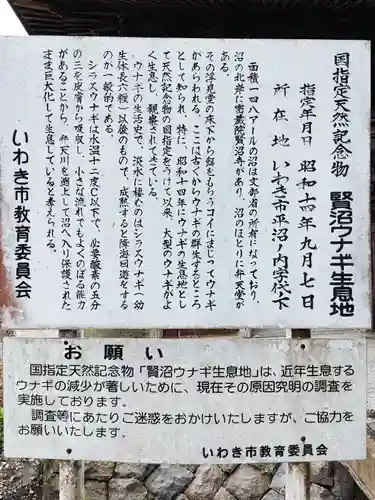 国指定天然記念物　賢沼ウナギ生息地
指定年月日　昭和十四年九月七日
所在地　いわき市平沼ノ内字代下
面積一四八アールの沼は文部省の所有になっており、
沼の北岸に密蔵院賢沼寺があり、沼のほとりに弁天堂が
ある。
その浮見堂の床下から餌をもらうコイにまじってウナギ
があらわれる。ここは古くからウナギの群生するところ
として知られ、特に、昭和十四年にウナギの生息地とし
て天然記念物の国指定をうけて以来、大型のウナギがよ
く生息し、観察されてきている。
ウナギの生活史で、淡水に棲むのはシラスウナギ（幼
生体長六糎）以後のもので、成熟すると降海回遊をする
のが一般的である。
シラスウナギは水温十二度C以下で、必要酸素の五分
の三を皮膚から吸収し、小さな流れでもよくのぼる能力
があることから、弁天川を遡上して沼へ入り保護された
まま巨大化して生息していると考えられる。
いわき市教育委員会
お願い
国指定天然記念物「賢沼ウナギ生息地」は、近年生息する
ウナギの減少が著しいために、現在その原因究明の調査を
実施しております。
調査等にあたりご迷惑をおかけいたしますが、ご協力を
お願いいたします。
いわき市教育委員会